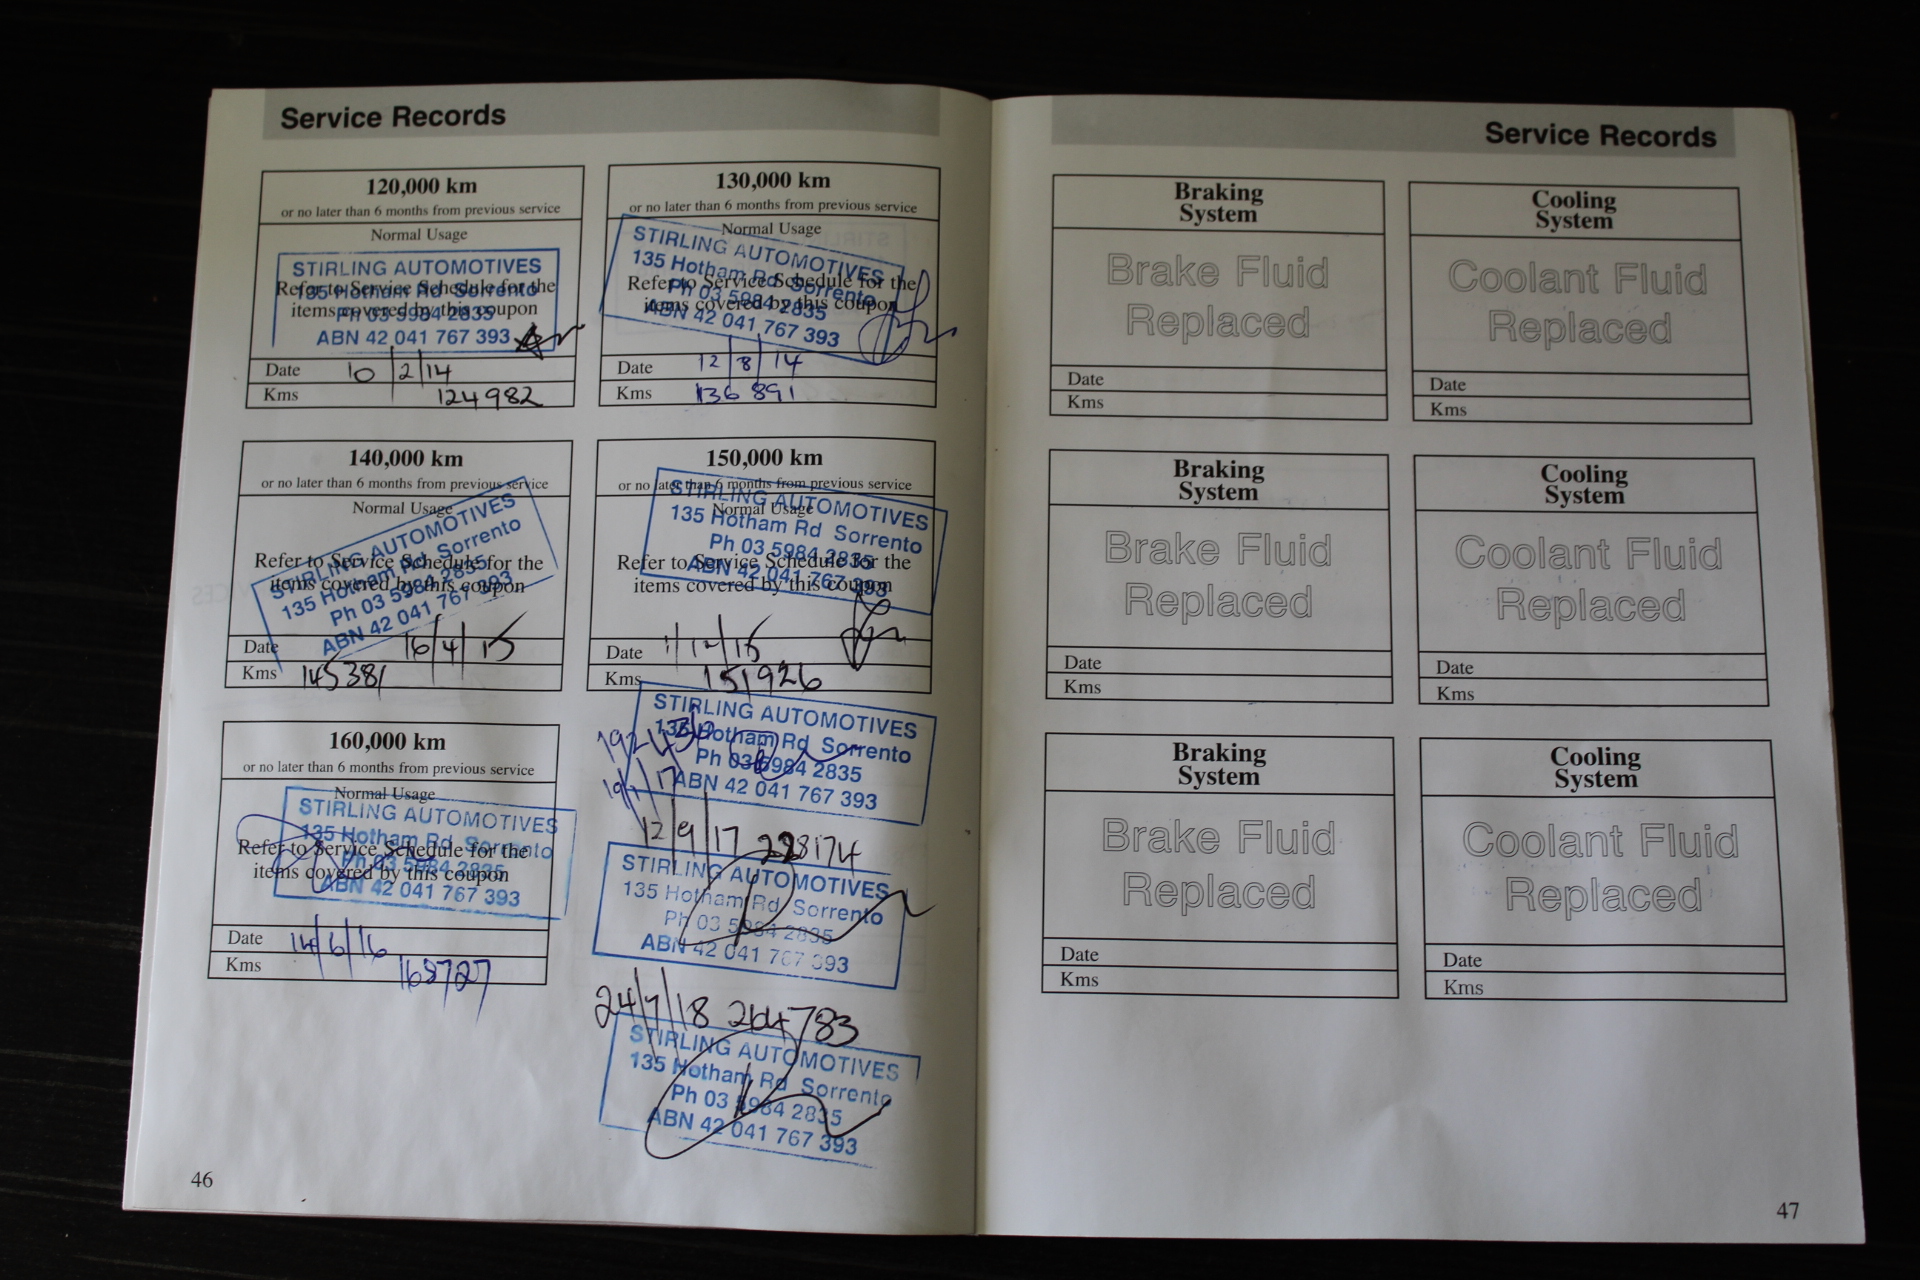 Service Records
120,000 km
or no later than 6 months from previous service
Normal Usage
STIRLING AUTOMOTIVES
Refer to Service Schedule for the
135 Hotham Rd Sorrento
items covered by this coupon
Ph 03 5984 2835
ABN 42 041 767 393
Date 10/2/14
Kms 124982
130,000 km
or no later than 6 months from previous service
Normal Usage
STIRLING AUTOMOTIVES
135 Hotham Rd Sorrento
Refer to Service Schedule for the
Ph 03 5984 2835
items covered by this coupon
ABN 42 041 767 393
Date 12/8/14
Kms 136891
140,000 km
or no later than 6 months from previous service
Normal Usage
STIRLING AUTOMOTIVES
135 Hotham Rd Sorrento
Refer to Service Schedule for the
Ph 03 5984 2835
items covered by this coupon
ABN 42 041 767 393
Date 16/4/15
Kms 145381
150,000 km
or no later than 6 months from previous service
STIRLING AUTOMOTIVES
Normal Usage
135 Hotham Rd Sorrento
Ph 03 5984 2835
Refer to Service Schedule for the
ABN 42 041 767 393
items covered by this coupon
Date 1/12/15
Kms 151926
160,000 km
or no later than 6 months from previous service
Normal Usage
STIRLING AUTOMOTIVES
135 Hotham Rd Sorrento
Refer to Service Schedule for the
Ph 03 5984 2835
items covered by this coupon
ABN 42 041 767 393
Date 14/6/16
Kms
STIRLING AUTOMOTIVES
135 Hotham Rd Sorrento
Ph 03 5984 2835
ABN 42 041 767 393
12/9/17 228174
STIRLING AUTOMOTIVES
135 Hotham Rd Sorrento
Ph 03 5984 2835
ABN 42 041 767 393
24/7/18 264783
STIRLING AUTOMOTIVES
135 Hotham Rd Sorrento
Ph 03 5984 2835
ABN 42 041 767 393
46
Service Records
Braking
System
Brake Fluid
Replaced
Date
Kms
Cooling
System
Coolant Fluid
Replaced
Date
Kms
Braking
System
Brake Fluid
Replaced
Date
Kms
Cooling
System
Coolant Fluid
Replaced
Date
Kms
Braking
System
Brake Fluid
Replaced
Date
Kms
Cooling
System
Coolant Fluid
Replaced
Date
Kms
47